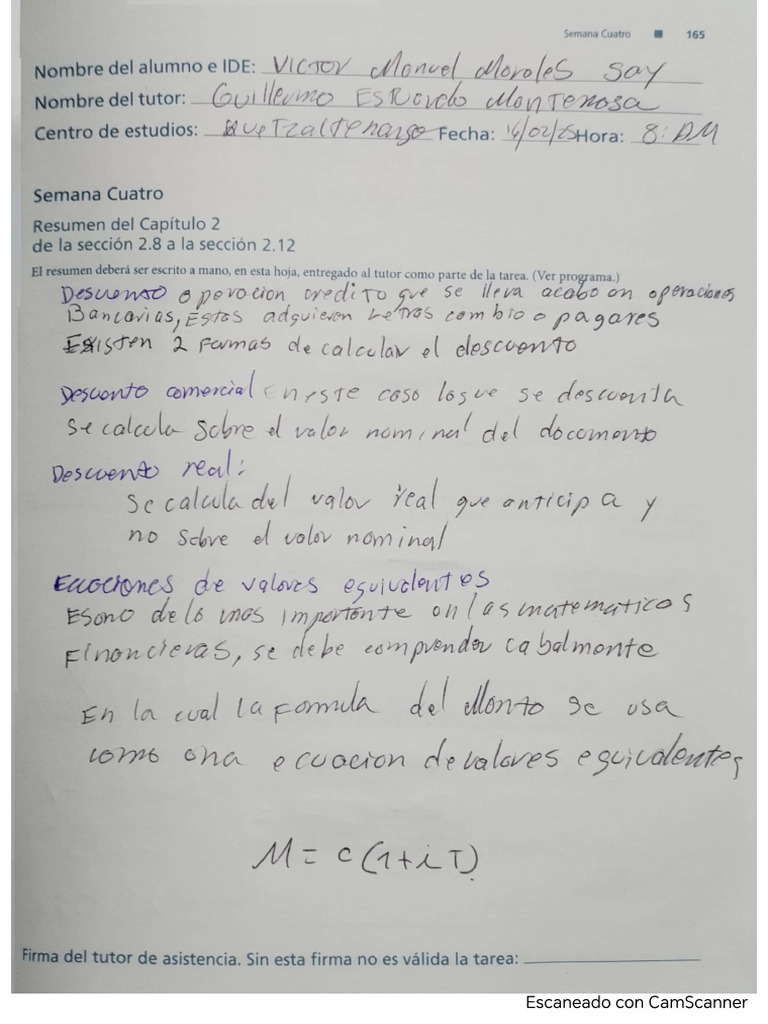 Semana Cuatro ■ 165
Nombre del alumno e IDE: VICTOR Manuel Morales Say
Nombre del tutor: Guillermo ESTUARDO Montenosa
Centro de estudios: QueTzalTenango Fecha: 16/02/25 Hora: 8: AM
Semana Cuatro
Resumen del Capítulo 2
de la sección 2.8 a la sección 2.12
El resumen deberá ser escrito a mano, en esta hoja, entregado al tutor como parte de la tarea. (Ver programa.)
Descuento operacion credito que se lleva acabo en operaciones
Bancarias, Estas adquieren Letras cambio o pagares
Existen 2 formas de calcular el descuento
Descuento comercial en este caso losque se descuenta
se calcula sobre el valor nominal del documento
Descuento real:
se calcula del valor real que anticipa y
no sobre el valor nominal
Ecuaciones de valores equivalentes
Esuno de lo mas importante en las matematicas
Financieras, se debe comprender cabalmente
En la cual la formula del Monto se usa
como una ecuacion de valores equivalentes
M = c(1+iT)
Firma del tutor de asistencia. Sin esta firma no es válida la tarea:
Escaneado con CamScanner